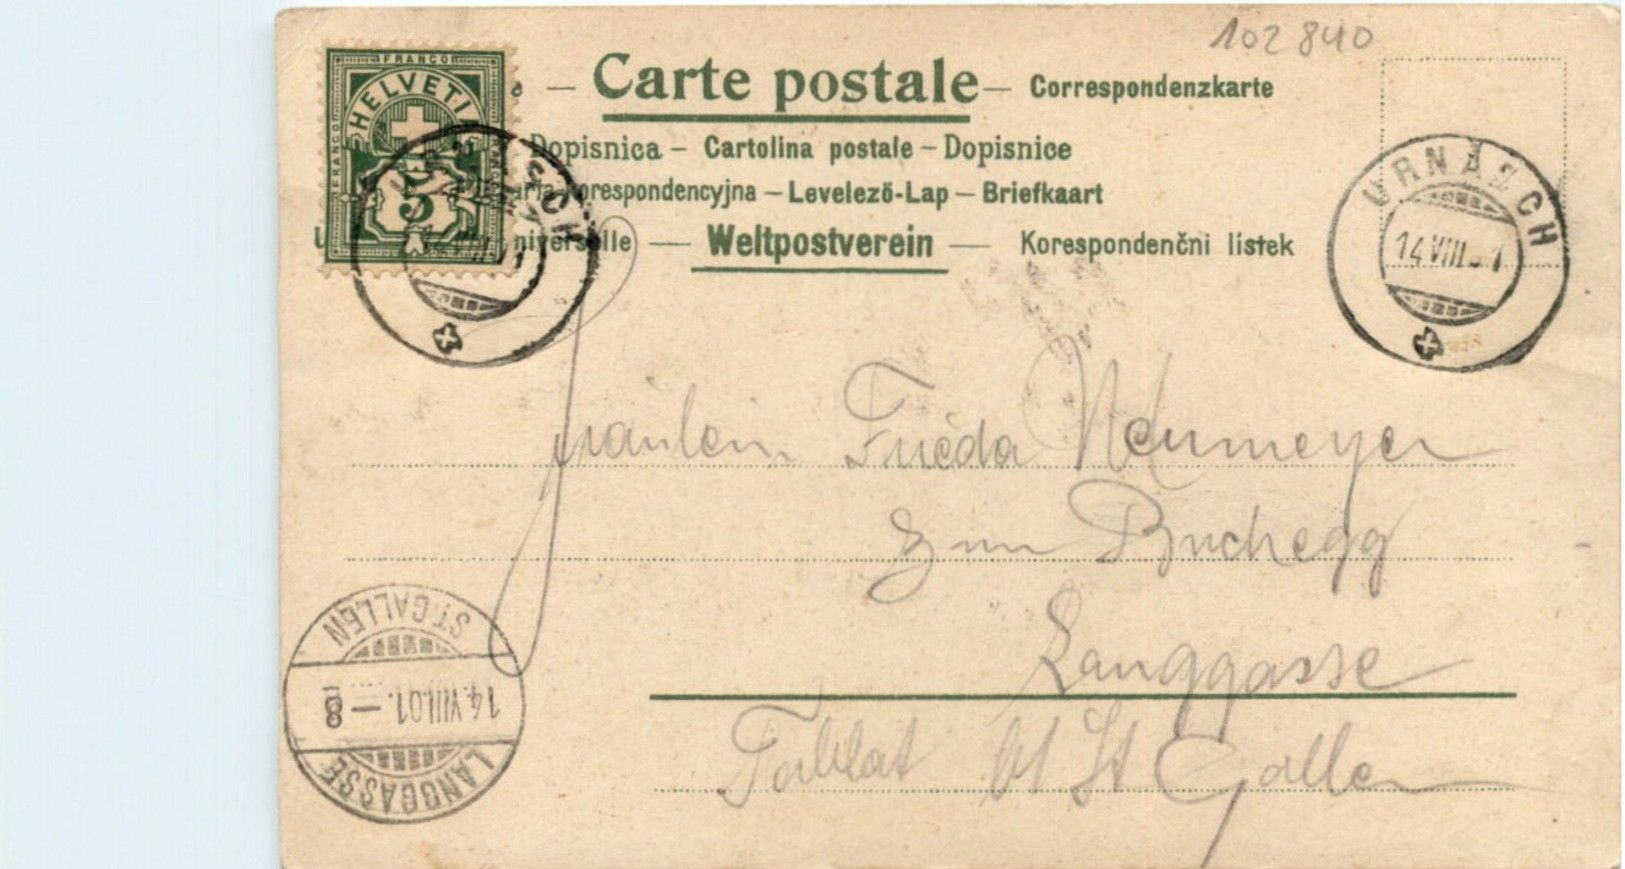 102 840
FRANCO
HELVETIA
FRANCO
5
Carte postale — Correspondenzkarte
Dopisnica – Cartolina postale – Dopisnice
korespondencyjna – Levelező-Lap – Briefkaart
universelle — Weltpostverein — Korespondenčni listek
URNÄSCH
14 VIII
URNÄSCH
14 VIII 01
Fräulein Frieda Neumeyer
zum Buchegg
Langgasse
Tablat b/ St Gallen
ST. GALLEN
14.VIII.01.–8
LANGGASSE